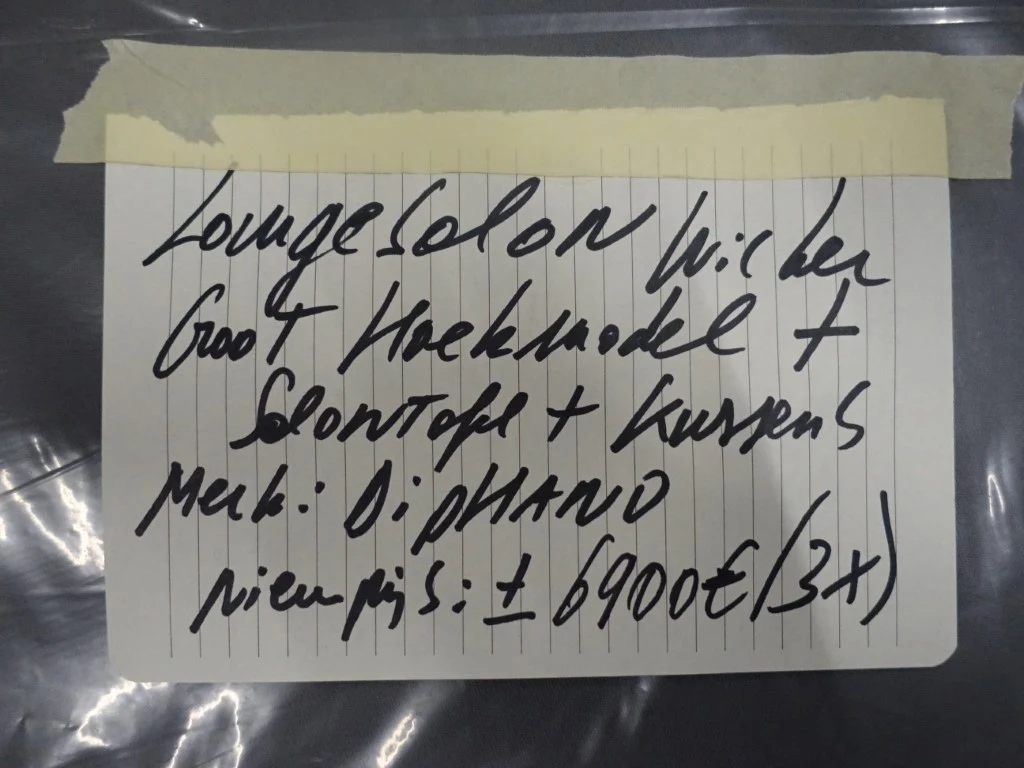 Loungesalon Wicker
Groot Hoekmodel +
Salontafel + Kussens
Merk: DipHANO
nieuwprijs: ± 6900€ (3x)